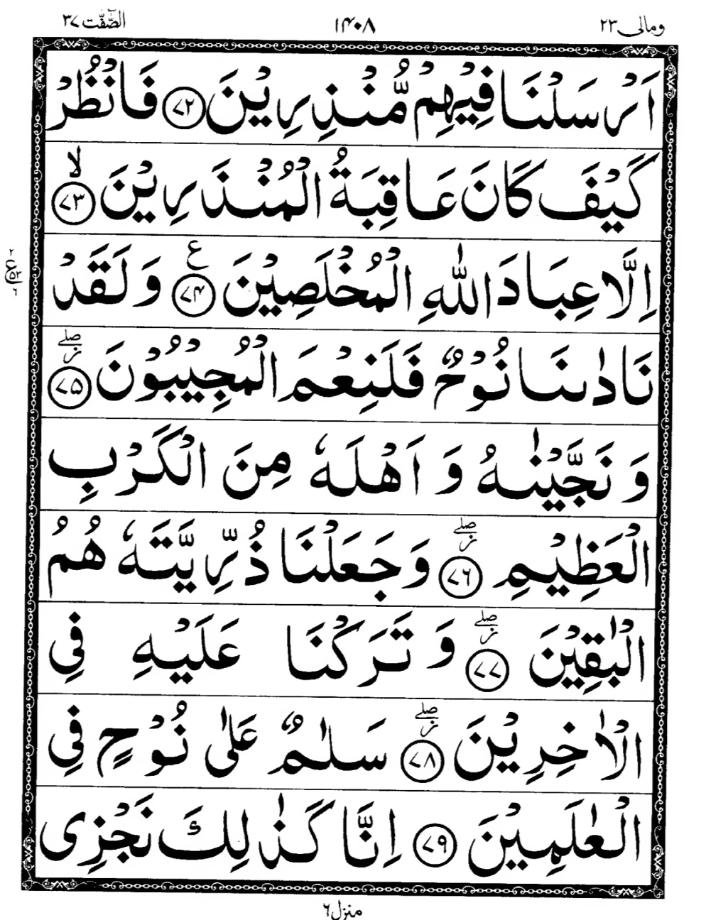 ومالی ۲۳ ۱۴۰۸ الصّٰٓفّٰت ۳۷
اَرْسَلْنَا فِيْهِمْ مُّنْذِرِيْنَ ﴿۷۲﴾ فَانْظُرْ
كَيْفَ كَانَ عَاقِبَةُ الْمُنْذَرِيْنَ ﴿۷۳﴾ ۙ
اِلَّا عِبَادَ اللّٰهِ الْمُخْلَصِيْنَ ﴿۷۴﴾ ع وَلَقَدْ
نَادٰىنَا نُوْحٌ فَلَنِعْمَ الْمُجِيْبُوْنَ ﴿۷۵﴾ ز ۖ
وَنَجَّيْنٰهُ وَاَهْلَهٗ مِنَ الْكَرْبِ
الْعَظِيْمِ ﴿۷۶﴾ ز ۖ وَجَعَلْنَا ذُرِّيَّتَهٗ هُمُ
الْبٰقِيْنَ ﴿۷۷﴾ ز ۖ وَتَرَكْنَا عَلَيْهِ فِى
الْاٰخِرِيْنَ ﴿۷۸﴾ ز ۖ سَلٰمٌ عَلٰى نُوْحٍ فِى
الْعٰلَمِيْنَ ﴿۷۹﴾ اِنَّا كَذٰلِكَ نَجْزِى
منزل ۶